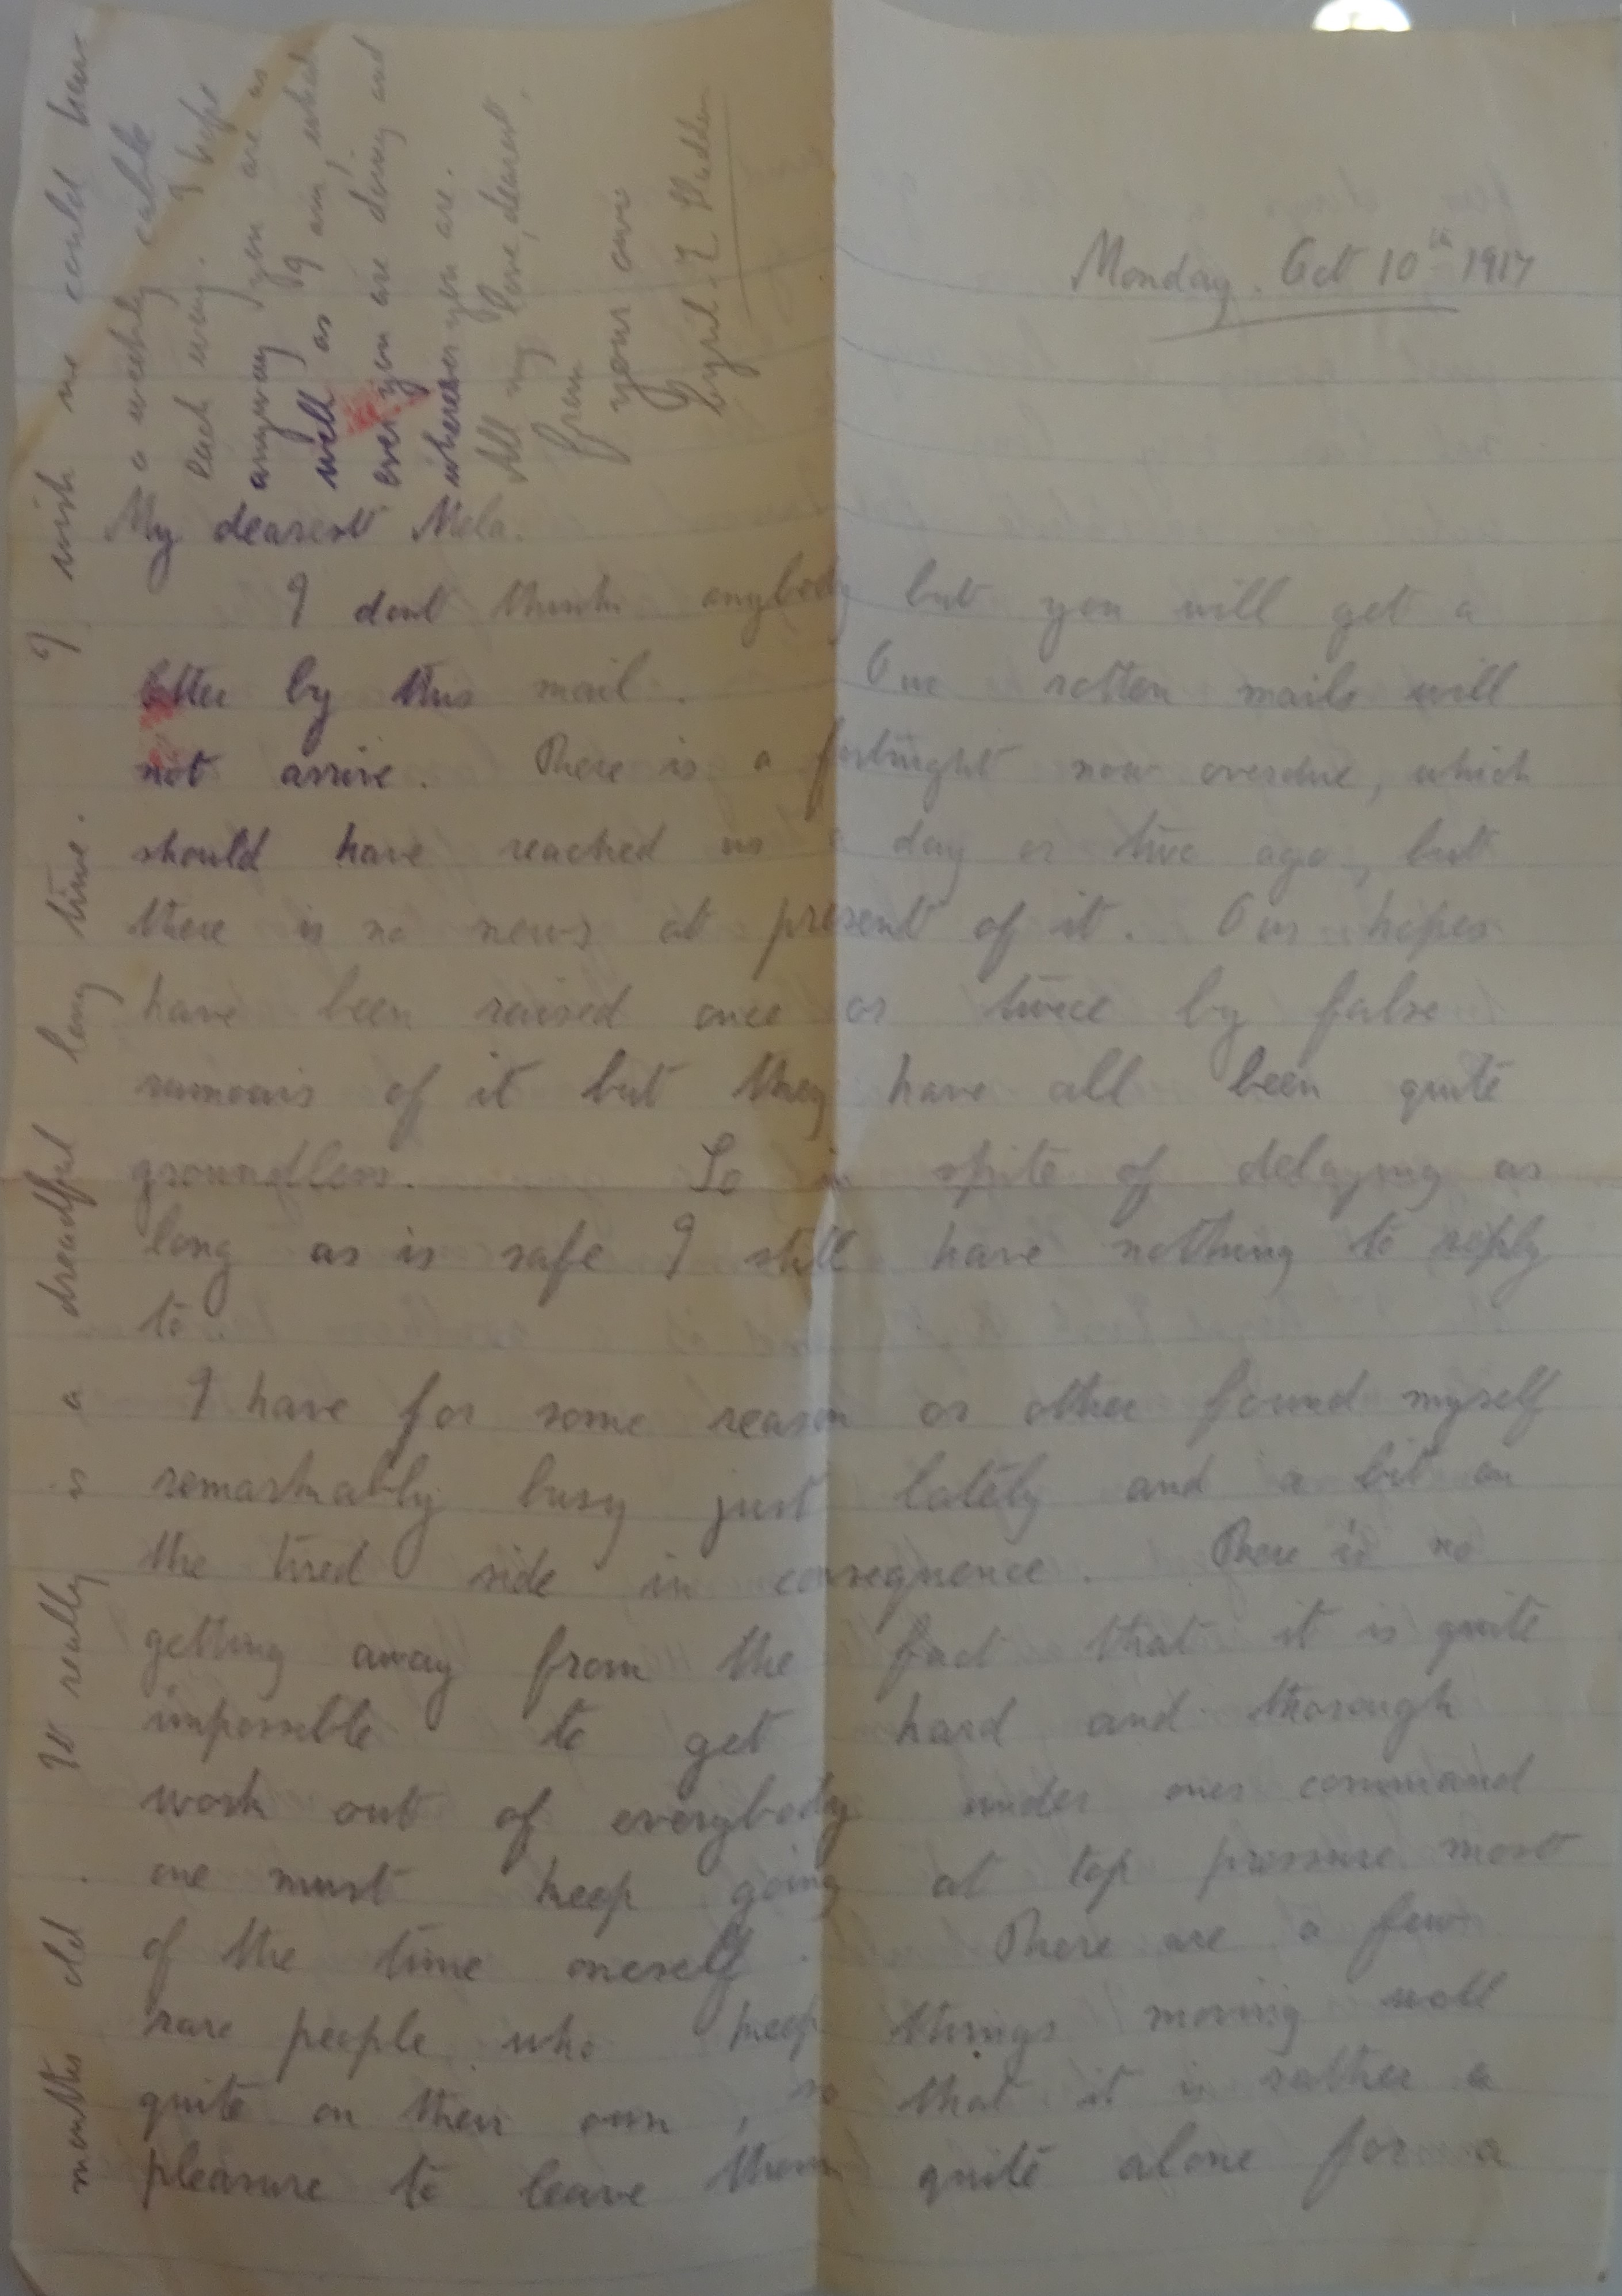 Monday. Oct 10th 1917
My dearest Mela.
I dont think anybody but you will get a
letter by this mail. Our rotten mails will
not arrive. There is a fortnight now overdue, which
should have reached us a day or two ago, but
there is no news at present of it. Our hopes
have been raised once or twice by false
rumours of it but they have all been quite
groundless. So in spite of delaying as
long as is safe I still have nothing to reply
to.
I have for some reason or other found myself
remarkably busy just lately and a bit on
the tired side in consequence. There is no
getting away from the fact that it is quite
impossible to get hard and thorough
work out of everybody under ones command
one must keep going at top pressure most
of the time oneself. There are a few
rare people who keep things moving well
quite on their own, so that it is rather a
pleasure to leave them quite alone for a
months old. It really is a dreadful long time. I wish we could have
a weekly cable
each way. I hope
anyway you are as
well as I am, what
ever you are doing and
wherever you are.
All my love, dearest,
from
your own
Cyril T